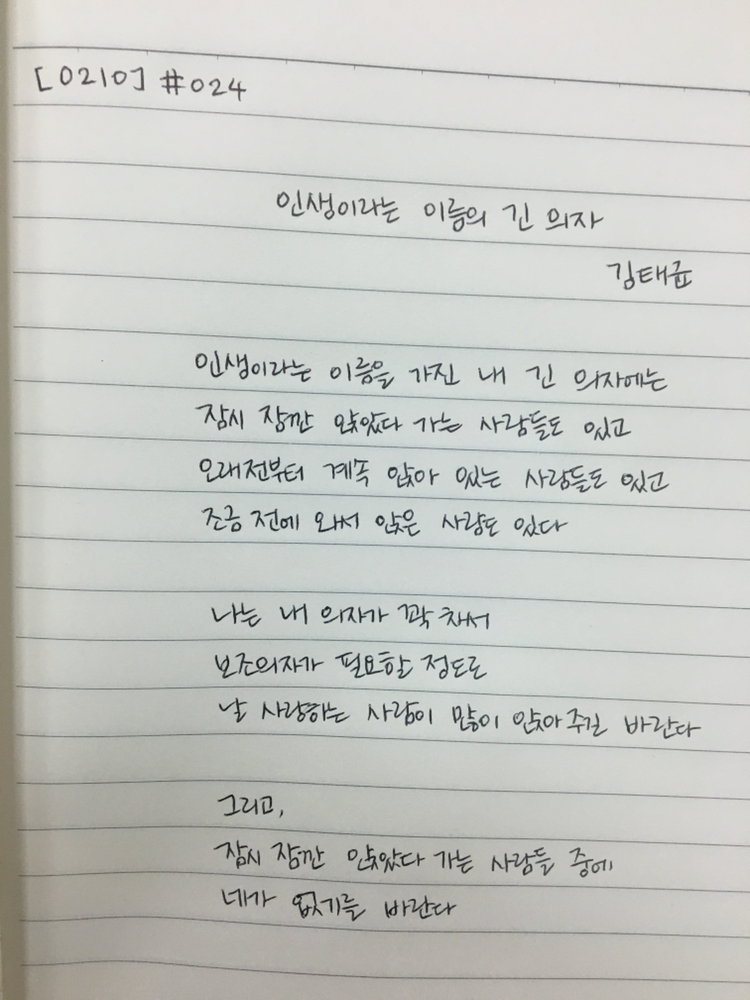 [0210] #024
인생이라는 이름의 긴 의자
김태균
인생이라는 이름을 가진 내 긴 의자에는
잠시 잠깐 앉았다 가는 사람들도 있고
오래전부터 계속 앉아 있는 사람들도 있고
조금 전에 와서 앉은 사람도 있다
나는 내 의자가 꽉 차서
보조의자가 필요할 정도로
날 사랑하는 사람이 많이 앉아주길 바란다
그리고,
잠시 잠깐 앉았다 가는 사람들 중에
네가 없기를 바란다